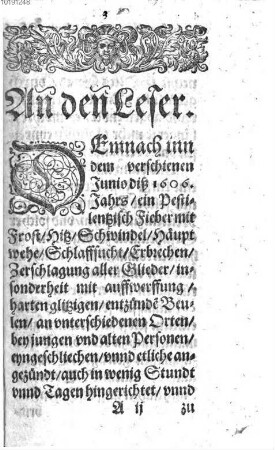 10191248
3
An den Leser.
DEmnach inn
dem verschienen
Junio diß 1606.
Jahrs / ein Pesti-
lentzisch Fieber mit
Frost / Hitz / Schwindel / Häupt
wehe / Schlaffsucht / Erbrechen /
Zerschlagung aller Glieder / in-
sonderheit mit auffwerffung /
harten glitzigen / entzündē Beu-
len / an unterschiedenen Orten /
bey jungen vnd alten Personen /
eyngeschliechen / vnnd etliche an-
gezündt / auch in wenig Stundt
vnnd Tagen hingerichtet / vnnd
A ij zu